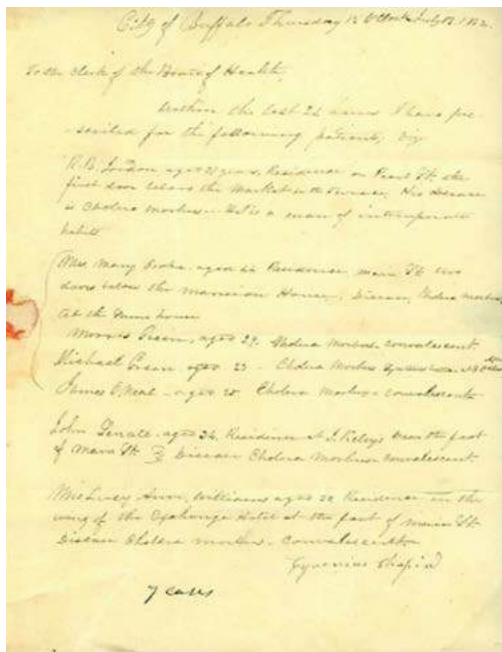 City of Buffalo Thursday 12 O'Clock July 19. 1832.
To the Clerk of the Board of Health,
Within the last 24 hours I have pre-
-scribed for the following patients, viz
R.B. London aged years, Residence on Pearl St. the
first door below the Market on the Terrace. His disease
is Cholera morbus. He is a man of intemperate
habits
Mrs. Mary aged Residence main St two
doors below the mansion House, Disease, Cholera morbus
At the same house
Morris Green, aged 29. Cholera Morbus - convalescent
Michael Green aged 23 - Cholera Morbus
James O'Neal - aged 20. Cholera Morbus - convalescent
John aged 24. Residence at near the foot
of Main St. Disease Cholera Morbus convalescent.
Mrs Lucy Ann, Williams aged 22 Residence in the
wing of the Exchange Hotel at the foot of main St.
Disease Cholera morbus. Convalescent
Cyrenius Chapin
7 cases